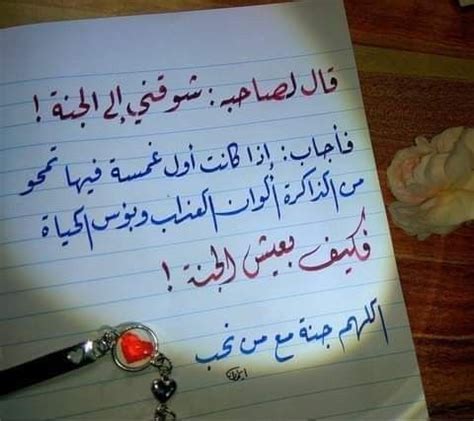 قال لصاحبه : شوقني إلى الجنة !
فأجاب : إذا كانت أول غمسة فيها تمحو
من الذاكرة ألوان العذاب وبؤس الحياة
فكيف بعيش الجنة !
اللهم جنة مع من نحب